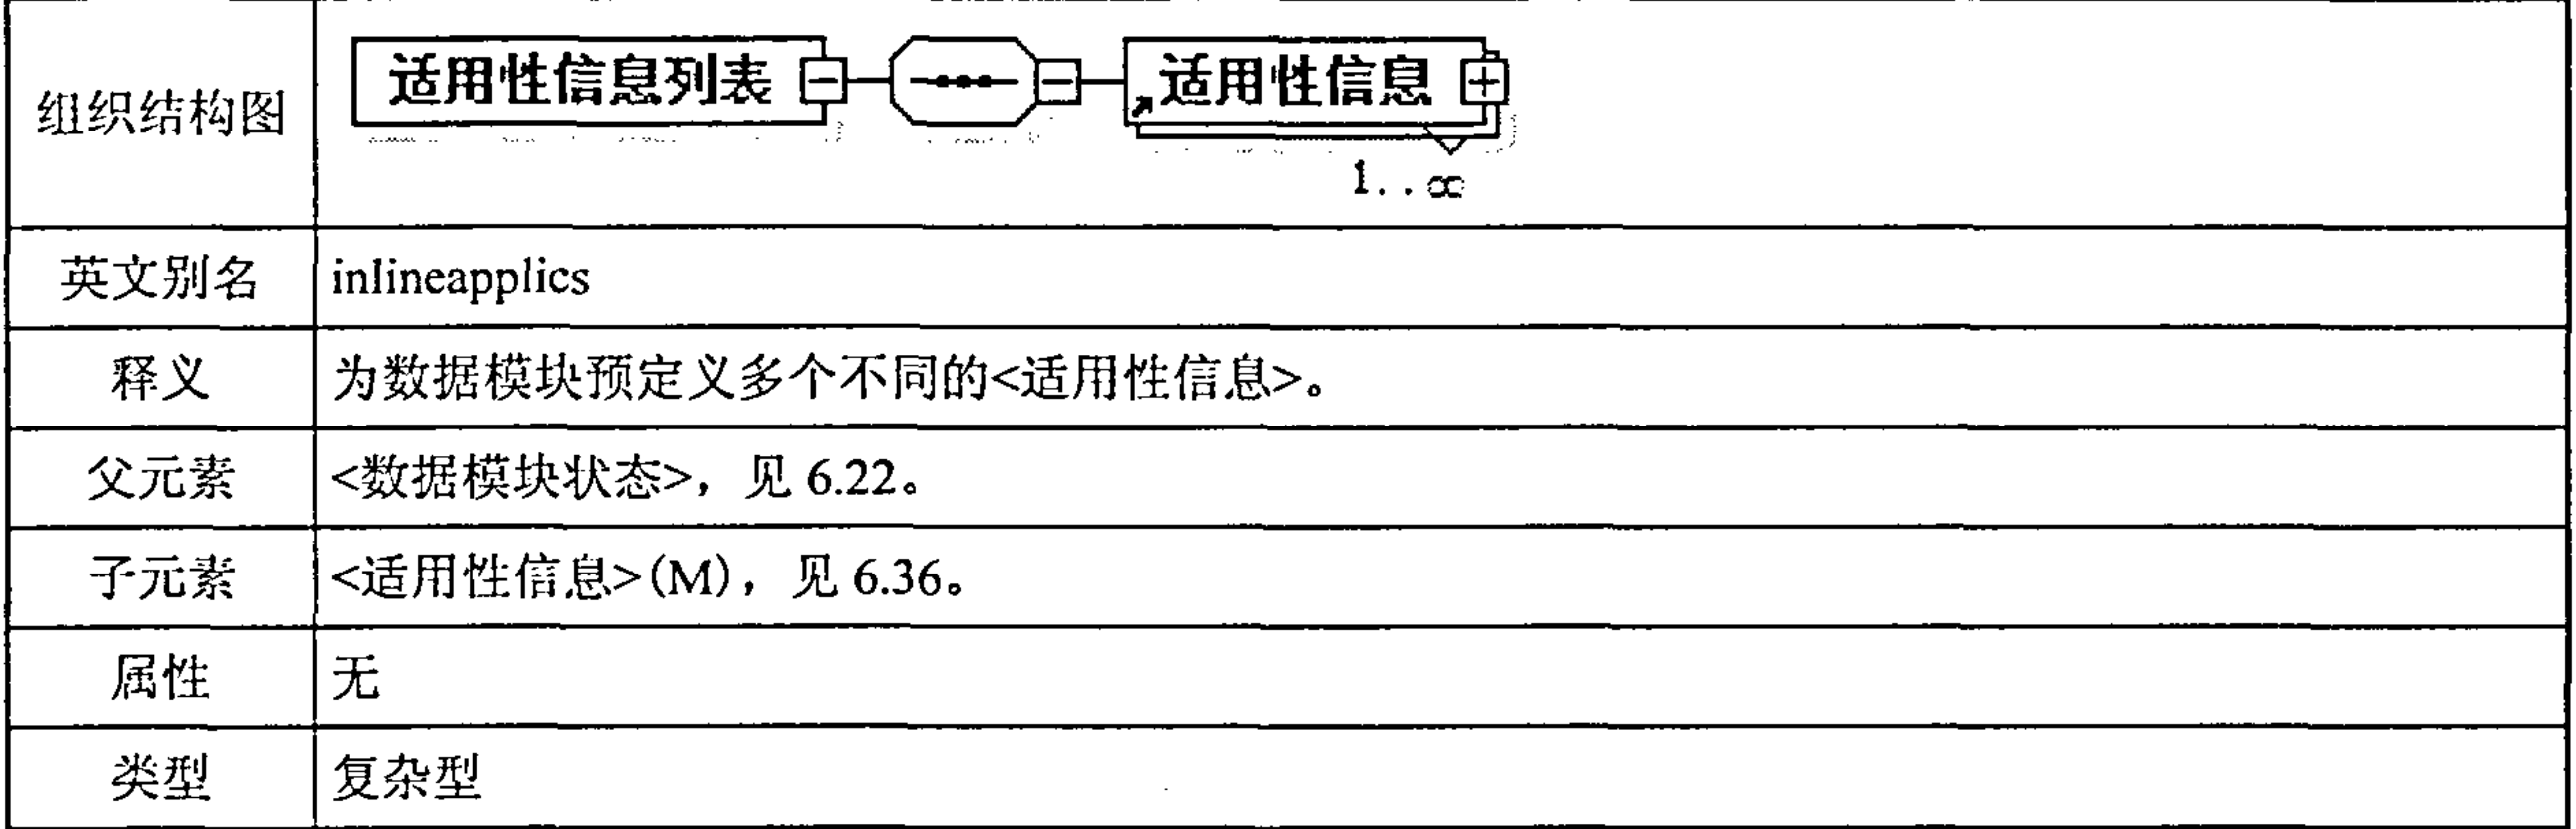 组织结构图 适用性信息列表 适用性信息
1..∞
英文别名 inlineapplics
释义 为数据模块预定义多个不同的<适用性信息>。
父元素 <数据模块状态>，见 6.22。
子元素 <适用性信息>(M)，见 6.36。
属性 无
类型 复杂型